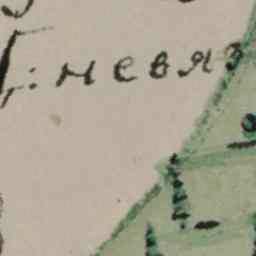 Г: невяз